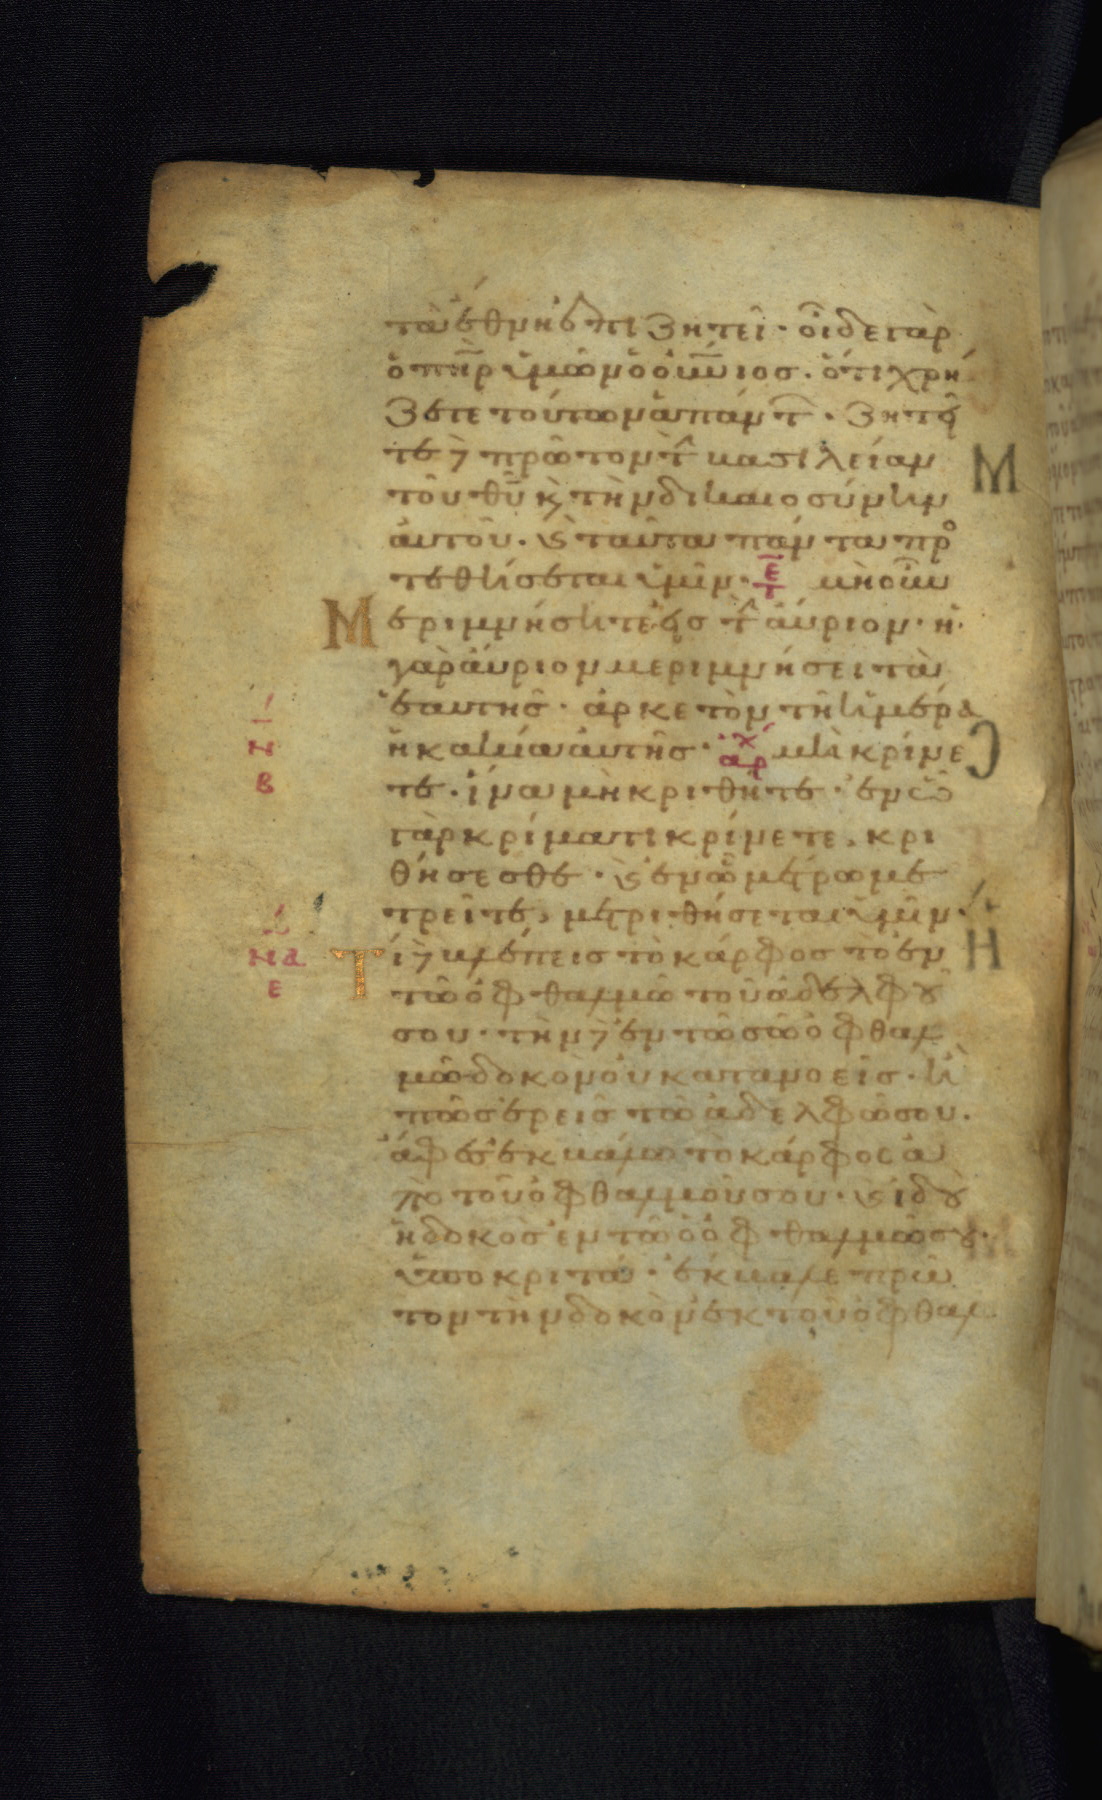 τὰ ἔθνη ἐπιζητεῖ· οἶδε γὰρ
ὁ π̅η̅ρ ὑμῶν ὁ ο̅υ̅νιος. ὅτι χρή
ζετε τούτων ἁπάντ̅· ζητεῖ
τε δὲ πρῶτον τ̂ βασιλείαν
τοῦ θ̅υ̅ κ̀ τὴν δικαιοσύνην
αὐτοῦ· κ̀ ταῦτα πάντα προ
τεθήσεται ὑμῖν· τ̅ε̅ μὴ οὖν
Μεριμνήσητε εἰς τ̂ αὔριον· ἡ
γὰρ αὔριον μεριμνήσει τὰ
ἑαυτῆς· ἀρκετὸν τῆ ἡμέρα
ἡ κακία αὐτῆς· ἀρχ μὴ κρίνε
τε· ἵνα μὴ κριθῆτε· ἐν ὧ
γὰρ κρίματι κρίνετε, κρι
θήσεσθε· κ̀ ἐν ὧ μέτρω με
τρεῖτε, μετριθήσεται ὑμῖν·
Τί δὲ βλέπεις τὸ κάρφος τὸ ἐν
τῶ ὀφθαλμῶ τοῦ ἀδελφοῦ
σου· τὴν δὲ ἐν τῶ σῶ ὀφθαλ
μῶ δοκὸν οὐ κατανοεῖς· ἢ
πῶς ἐρεῖς τῶ ἀδελφῶ σου.
ἄφες ἐκβάλω τὸ κάρφος ἀ
πὸ τοῦ ὀφθαλμοῦ σου· κ̀ ἰδοὺ
ἡ δοκὸς ἐν τῶ ὀφθαλμῶ σου·
ὑποκριτά· ἔκβαλε πρῶ
τον τὴν δοκὸν ἐκ τοῦ ὀφθαλ
ν
β
να
ε
Μ
Η